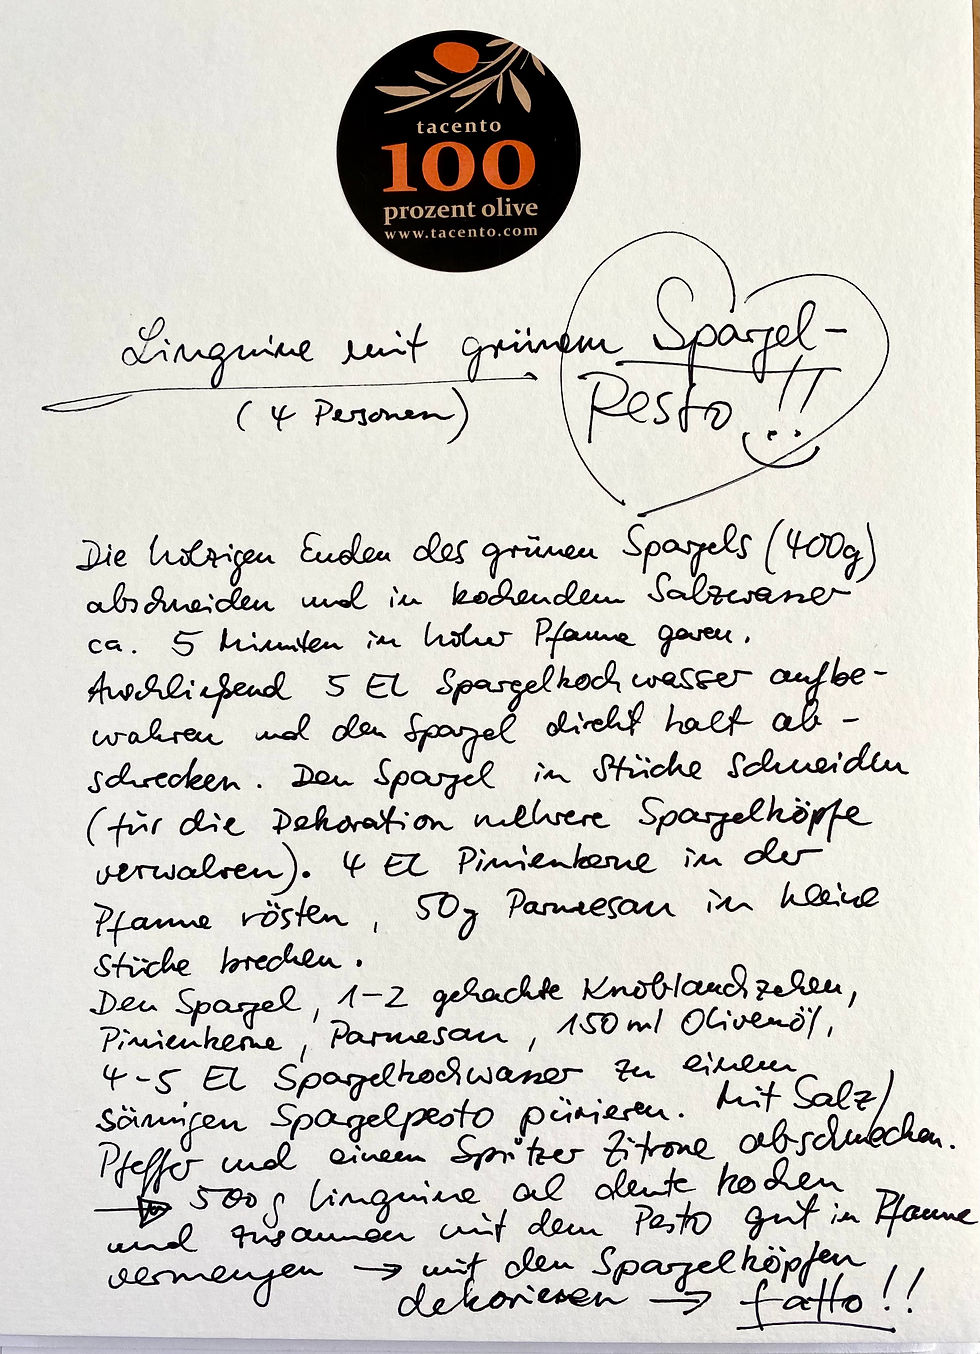 tacento
100
prozent olive
www.tacento.com
Linguine mit grünem Spargel-
Pesto!!
(4 Personen)
Die holzigen Enden des grünen Spargels (400g)
abschneiden und in kochendem Salzwasser
ca. 5 Minuten in hoher Pfanne garen.
Anschließend 5 EL Spargelkochwasser aufbe-
wahren und den Spargel direkt kalt ab-
schrecken. Den Spargel in Stücke schneiden
(für die Dekoration mehrere Spargelköpfe
verwahren). 4 EL Pinienkerne in der
Pfanne rösten, 50g Parmesan in kleine
Stücke brechen.
Den Spargel, 1-2 gehackte Knoblauchzehen,
Pinienkerne, Parmesan, 150ml Olivenöl,
4-5 EL Spargelkochwasser zu einem
sämigen Spargelpesto pürieren. Mit Salz/
Pfeffer und einem Spritzer Zitrone abschmecken.
→ 500g Linguine al dente kochen
und zusammen mit dem Pesto gut in Pfanne
vermengen → mit den Spargelköpfen
dekorieren → fatto!!